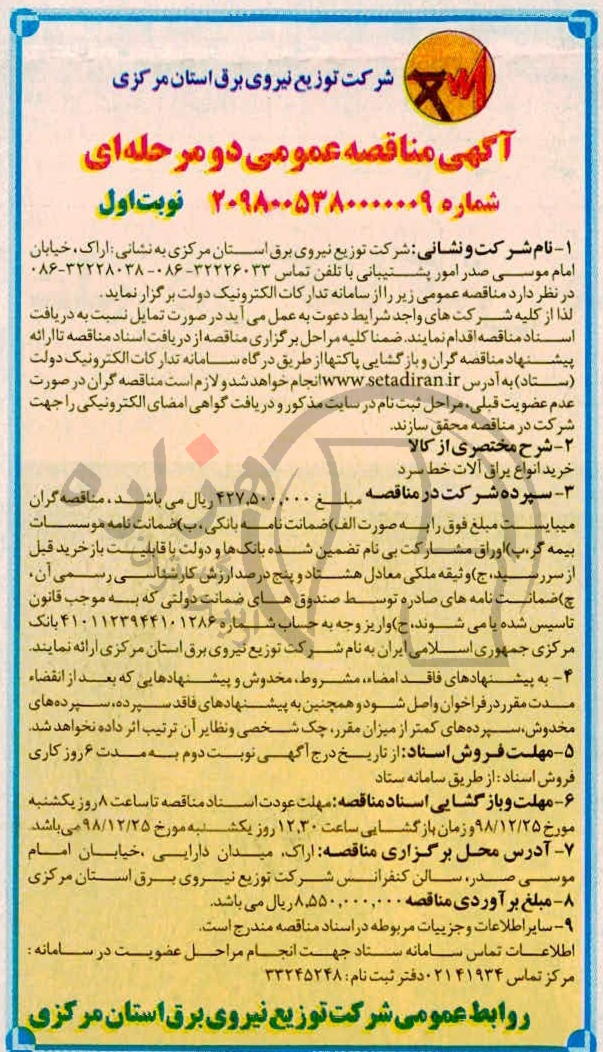 شرکت توزیع نیروی برق استان مرکزی
آگهی مناقصه عمومی دو مرحله‌ای
شماره ۲۰۹۸۰۰۵۳۸۰۰۰۰۰۰۹ نوبت اول
۱- نام شرکت و نشانی: شرکت توزیع نیروی برق استان مرکزی به نشانی: اراک، خیابان
امام موسی صدر امور پشتیبانی با تلفن تماس ۳۲۲۲۶۰۳۳-۰۸۶ - ۳۲۲۲۸۰۳۸-۰۸۶
در نظر دارد مناقصه عمومی زیر را از سامانه تدارکات الکترونیک دولت برگزار نماید.
لذا از کلیه شرکت های واجد شرایط دعوت به عمل می آید در صورت تمایل نسبت به دریافت
اسناد مناقصه اقدام نمایند. ضمنا کلیه مراحل برگزاری مناقصه از دریافت اسناد مناقصه تا ارائه
پیشنهاد مناقصه گران و بازگشایی پاکتها از طریق درگاه سامانه تدارکات الکترونیک دولت
(ستاد) به آدرس www.setadiran.ir انجام خواهد شد و لازم است مناقصه گران در صورت
عدم عضویت قبلی، مراحل ثبت نام در سایت مذکور و دریافت گواهی امضای الکترونیکی را جهت
شرکت در مناقصه محقق سازند.
۲- شرح مختصری از کالا
خرید انواع یراق آلات خط سرد
۳- سپرده شرکت در مناقصه مبلغ ۴۲۷,۵۰۰,۰۰۰ ریال می باشد، مناقصه گران
میبایست مبلغ فوق را به صورت الف) ضمانت نامه بانکی، ب) ضمانت نامه موسسات
بیمه گر، پ) اوراق مشارکت بی نام تضمین شده بانک ها و دولت با قابلیت باز خرید قبل
از سررسید، ج) وثیقه ملکی معادل هشتاد و پنج درصد ارزش کارشناسی رسمی آن،
چ) ضمانت نامه های صادره توسط صندوق های ضمانت دولتی که به موجب قانون
تاسیس شده یا می شوند، ح) واریز وجه به حساب شماره ۴۱۰۱۱۲۳۹۴۴۱۰۱۲۸۶ بانک
مرکزی جمهوری اسلامی ایران به نام شرکت توزیع نیروی برق استان مرکزی ارائه نمایند.
۴- به پیشنهادهای فاقد امضاء، مشروط، مخدوش و پیشنهادهایی که بعد از انقضاء
مدت مقرر در فراخوان واصل شود و همچنین به پیشنهادهای فاقد سپرده، سپرده‌های
مخدوش، سپرده‌های کمتر از میزان مقرر، چک شخصی ونظایر آن ترتیب اثر داده نخواهد شد.
۵- مهلت فروش اسناد: از تاریخ درج آگهی نوبت دوم به مدت ۶ روز کاری
فروش اسناد: از طریق سامانه ستاد
۶- مهلت و بازگشایی اسناد مناقصه: مهلت عودت اسناد مناقصه تا ساعت ۸ روز یکشنبه
مورخ ۹۸/۱۲/۲۵ و زمان بازگشایی ساعت ۱۲.۳۰ روز یکشنبه مورخ ۹۸/۱۲/۲۵ می‌باشد.
۷- آدرس محل برگزاری مناقصه: اراک، میدان دارایی، خیابان امام
موسی صدر، سالن کنفرانس شرکت توزیع نیروی برق استان مرکزی
۸- مبلغ برآوردی مناقصه ۸,۵۵۰,۰۰۰,۰۰۰ ریال می باشد.
۹- سایر اطلاعات و جزییات مربوطه در اسناد مناقصه مندرج است.
اطلاعات تماس سامانه ستاد جهت انجام مراحل عضویت در سامانه:
مرکز تماس ۰۲۱۴۱۹۳۴ دفتر ثبت نام: ۳۳۲۴۵۲۴۸
روابط عمومی شرکت توزیع نیروی برق استان مرکزی
هزاره